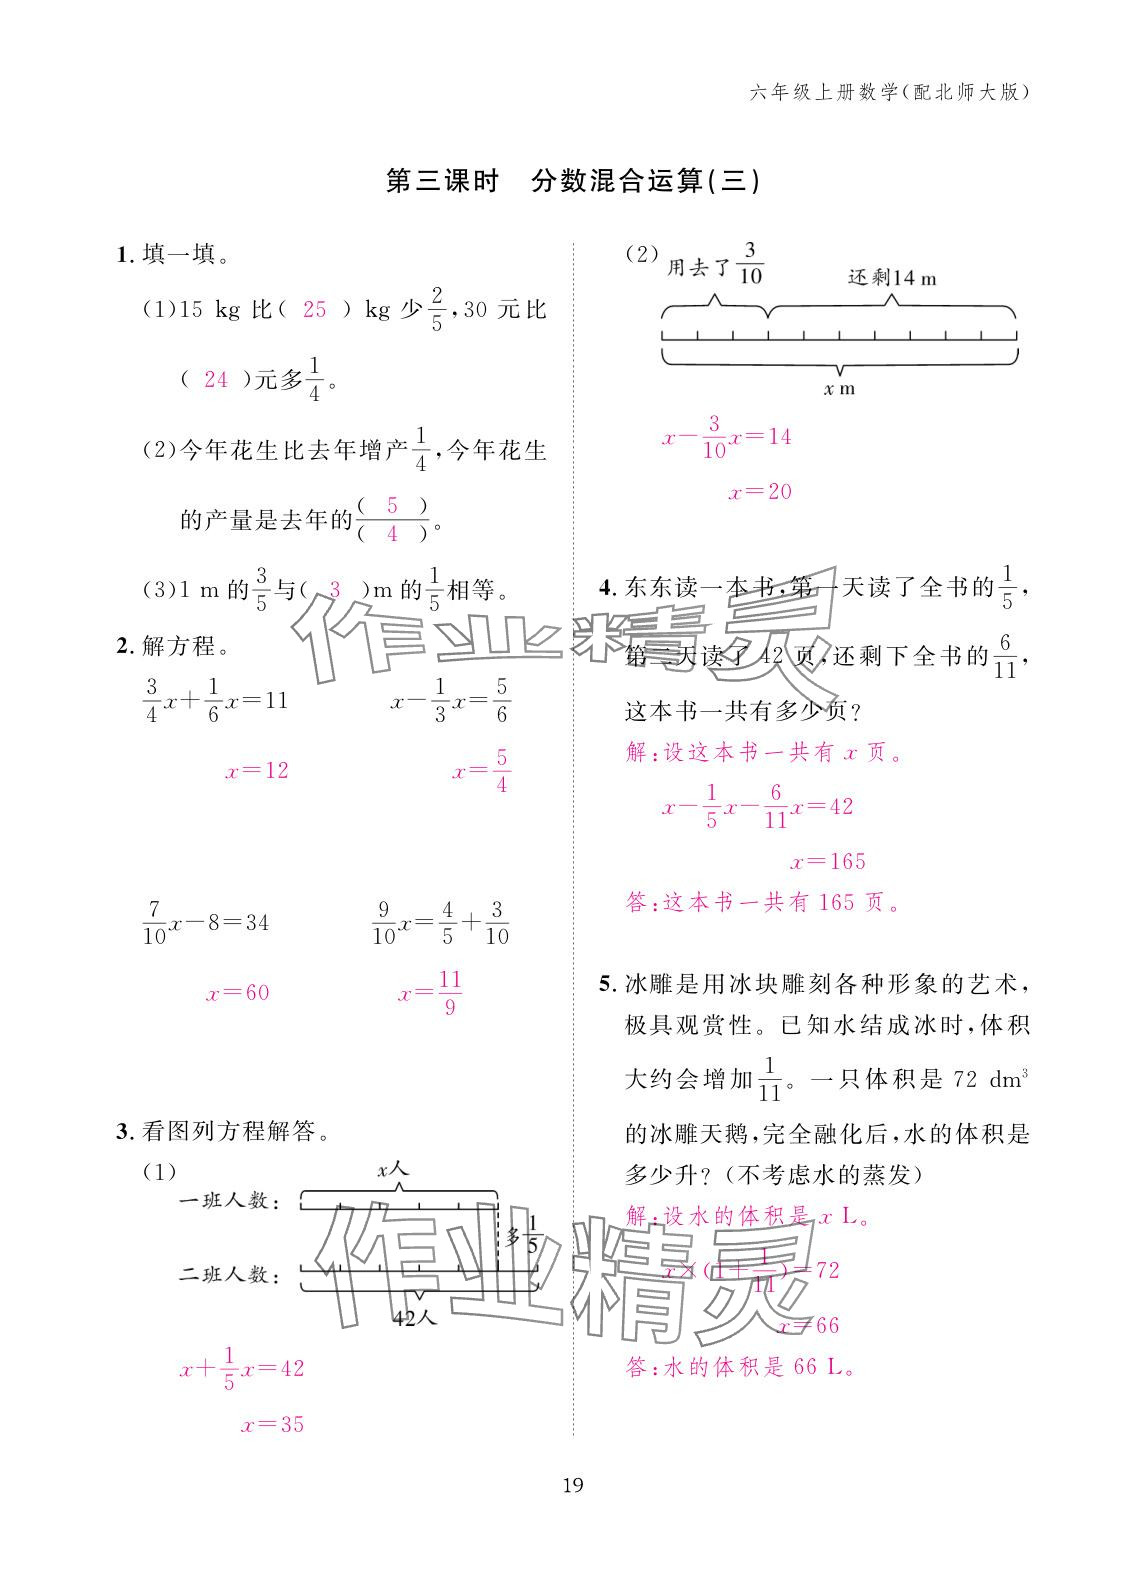 六年级上册数学(配北师大版)
第三课时　分数混合运算(三)
1. 填一填。
(1)15 kg 比( 25 ) kg 少2/5,30 元比
( 24 )元多1/4。
(2)今年花生比去年增产1/4,今年花生
的产量是去年的( 5 )/( 4 )。
(3)1 m 的3/5与( 3 )m 的1/5相等。
2. 解方程。
3/4x+1/6x=11　x-1/3x=5/6
x=12　x=5/4
7/10x-8=34　9/10x=4/5+3/10
x=60　x=11/9
3. 看图列方程解答。
(1)
x人
一班人数:
多1/5
二班人数:
42人
x+1/5x=42
x=35
(2)
用去了3/10　还剩14 m
x m
x-3/10x=14
x=20
4. 东东读一本书,第一天读了全书的1/5,
第二天读了 42 页,还剩下全书的6/11,
这本书一共有多少页?
解:设这本书一共有 x 页。
x-1/5x-6/11x=42
x=165
答:这本书一共有 165 页。
5. 冰雕是用冰块雕刻各种形象的艺术,
极具观赏性。已知水结成冰时,体积
大约会增加1/11。一只体积是 72 dm³
的冰雕天鹅,完全融化后,水的体积是
多少升?(不考虑水的蒸发)
解:设水的体积是 x L。
x×(1+1/11)=72
x=66
答:水的体积是 66 L。
19
作业精灵
作业精灵